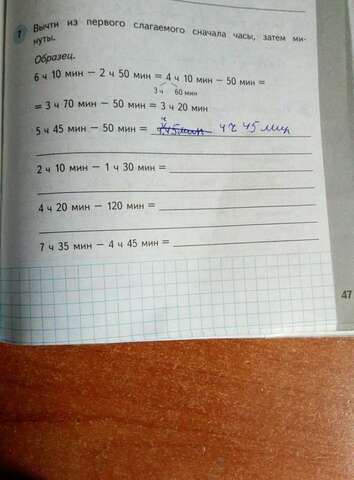 7 Вычти из первого слагаемого сначала часы, затем ми-
нуты.
Образец.
6 ч 10 мин − 2 ч 50 мин = 4 ч 10 мин − 50 мин =
3 ч 60 мин
= 3 ч 70 мин − 50 мин = 3 ч 20 мин
5 ч 45 мин − 50 мин = 4 ч 45 мин
2 ч 10 мин − 1 ч 30 мин =
4 ч 20 мин − 120 мин =
7 ч 35 мин − 4 ч 45 мин =
47